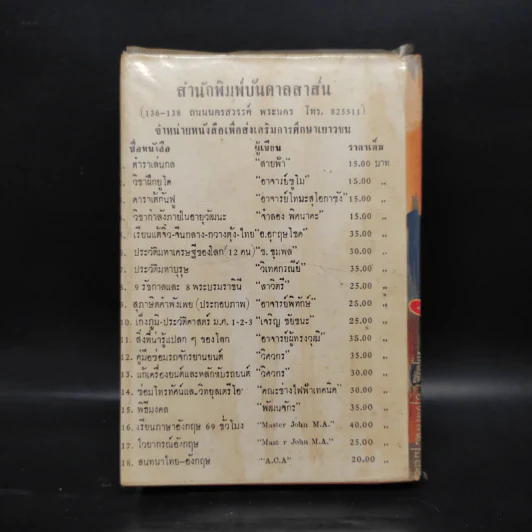 สำนักพิมพ์บันดาลสาส์น
(136-138 ถนนนครสวรรค์ พระนคร โทร. 825511)
จำหน่ายหนังสือเพื่อส่งเสริมการศึกษาเยาวชน
ชื่อหนังสือ ผู้เขียน ราคาเล่ม
ตำราเล่นกล "สายฟ้า" 15.00 บาท
วิชาฝึกยูโด "อาจารย์ชูโม่" 15.00 "
คาราเต้กันฟู "อาจารย์โทมะสุโอกาซัง" 15.00 "
วิชากำลังภายในอายุวัฒนะ "จำลอง พิศนาคะ" 15.00 "
เรียนแต้จิ๋ว-จีนกลาง-กวางตุ้ง-ไทย "อ.อุกฤษโชค" 35.00 "
6. ประวัติมหาเศรษฐีของโลก 12 คน "ช. ชุมพล" 30.00 "
7. ประวัติมหาบุรุษ "วิเทศกรณีย์" 35.00 "
8. 9 รัชกาลและ 8 พระบรมราชินี "สาวิตรี" 25.00 "
9. สุภาษิตคำพังเพย (ประกอบภาพ) "อาจารย์พิทักษ์" 25.00 "
10. เก็งภูมิ-ประวัติศาสตร์ ม.ศ. 1-2-3 "เจริญ ไชยชนะ" 25.00 "
11. สิ่งที่น่ารู้แปลก ๆ ของโลก "อาจารย์ผู้ทรงวุฒิ" 35.00 "
12. คู่มือซ่อมรถจักรยานยนต์ "วิศวกร" 35.00 "
13. แก้เครื่องยนต์และหลักขับรถยนต์ "วิศวกร" 30.00 "
14. ซ่อมโทรทัศน์และวิทยุสเตริโอ "คณะช่างไฟฟ้าเทคนิค" 30.00 "
15. พิธีมงคล "พัฒนจักร" 35.00 "
16. เรียนภาษาอังกฤษ 69 ชั่วโมง "Master John M.A." 40.00 "
17. ไวยากรณ์อังกฤษ "Mast r John M.A." 25.00 "
18. สนทนาไทย-อังกฤษ "A.C.A" 20.00 "